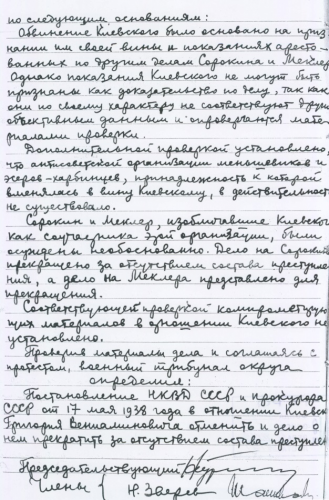 по следующим основаниям:
Обвинение Киевского было основано на приз-
нании им своей вины и показаниях аресто-
ванных по другим делам Сорокина и Меклер
Однако показания Киевского не могут быть
признаны как доказательство по делу, так как
они по своему характеру не соответствуют друг
объективным данным и опровергаются мате-
риалами проверки.
Дополнительной проверкой установлено,
что антисоветской организации меньшевиков и
эсеров-харбинцев, принадлежность к которой
вменялась в вину Киевскому, в действительност
не существовало.
Сорокин и Меклер, изобличавшие Киевског
как соучастника этой организации, были
осуждены необоснованно. Дело на Сорокина
прекращено за отсутствием состава преступле
ния, а дело на Меклера представлено для
прекращения.
Соответствующей проверкой компрометирую
щих материалов в отношении Киевского не
установлено.
Проверив материалы дела и соглашаясь с
протестом, военный трибунал округа
определил:
Постановление НКВД СССР и прокурора
СССР от 17 мая 1938 года в отношении Киевск
Григория Вениаминовича отменить и дело о
нем прекратить за отсутствием состава преступлен
Председательствующий
Члены Н. Зверев